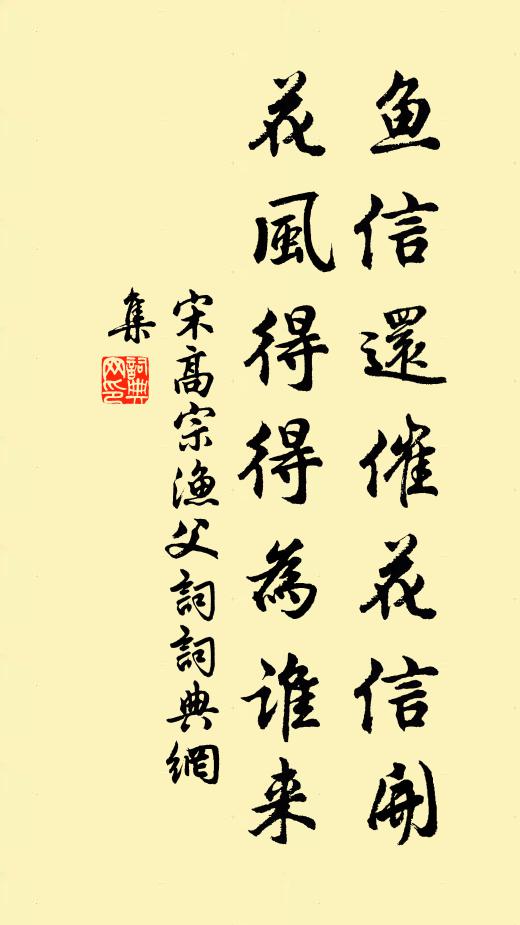 魚信還催花信開
花風得得為誰来
宋高宗漁父詞詞典網
集
詞典
网印